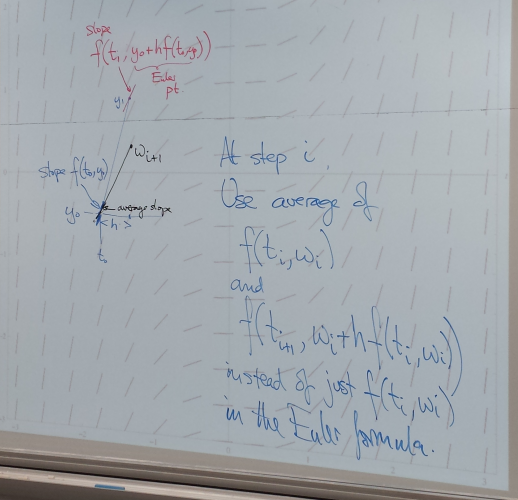 slope
f(t₁, y₀+hf(t₀,y₀))
Euler
pt.
y₁
wᵢ₊₁
slope f(t₀,y₀)
average slope
y₀
h
t₀
At step i,
Use average of
f(tᵢ,wᵢ)
and
f(tᵢ₊₁, wᵢ+hf(tᵢ,wᵢ))
instead of just f(tᵢ,wᵢ)
in the Euler formula.